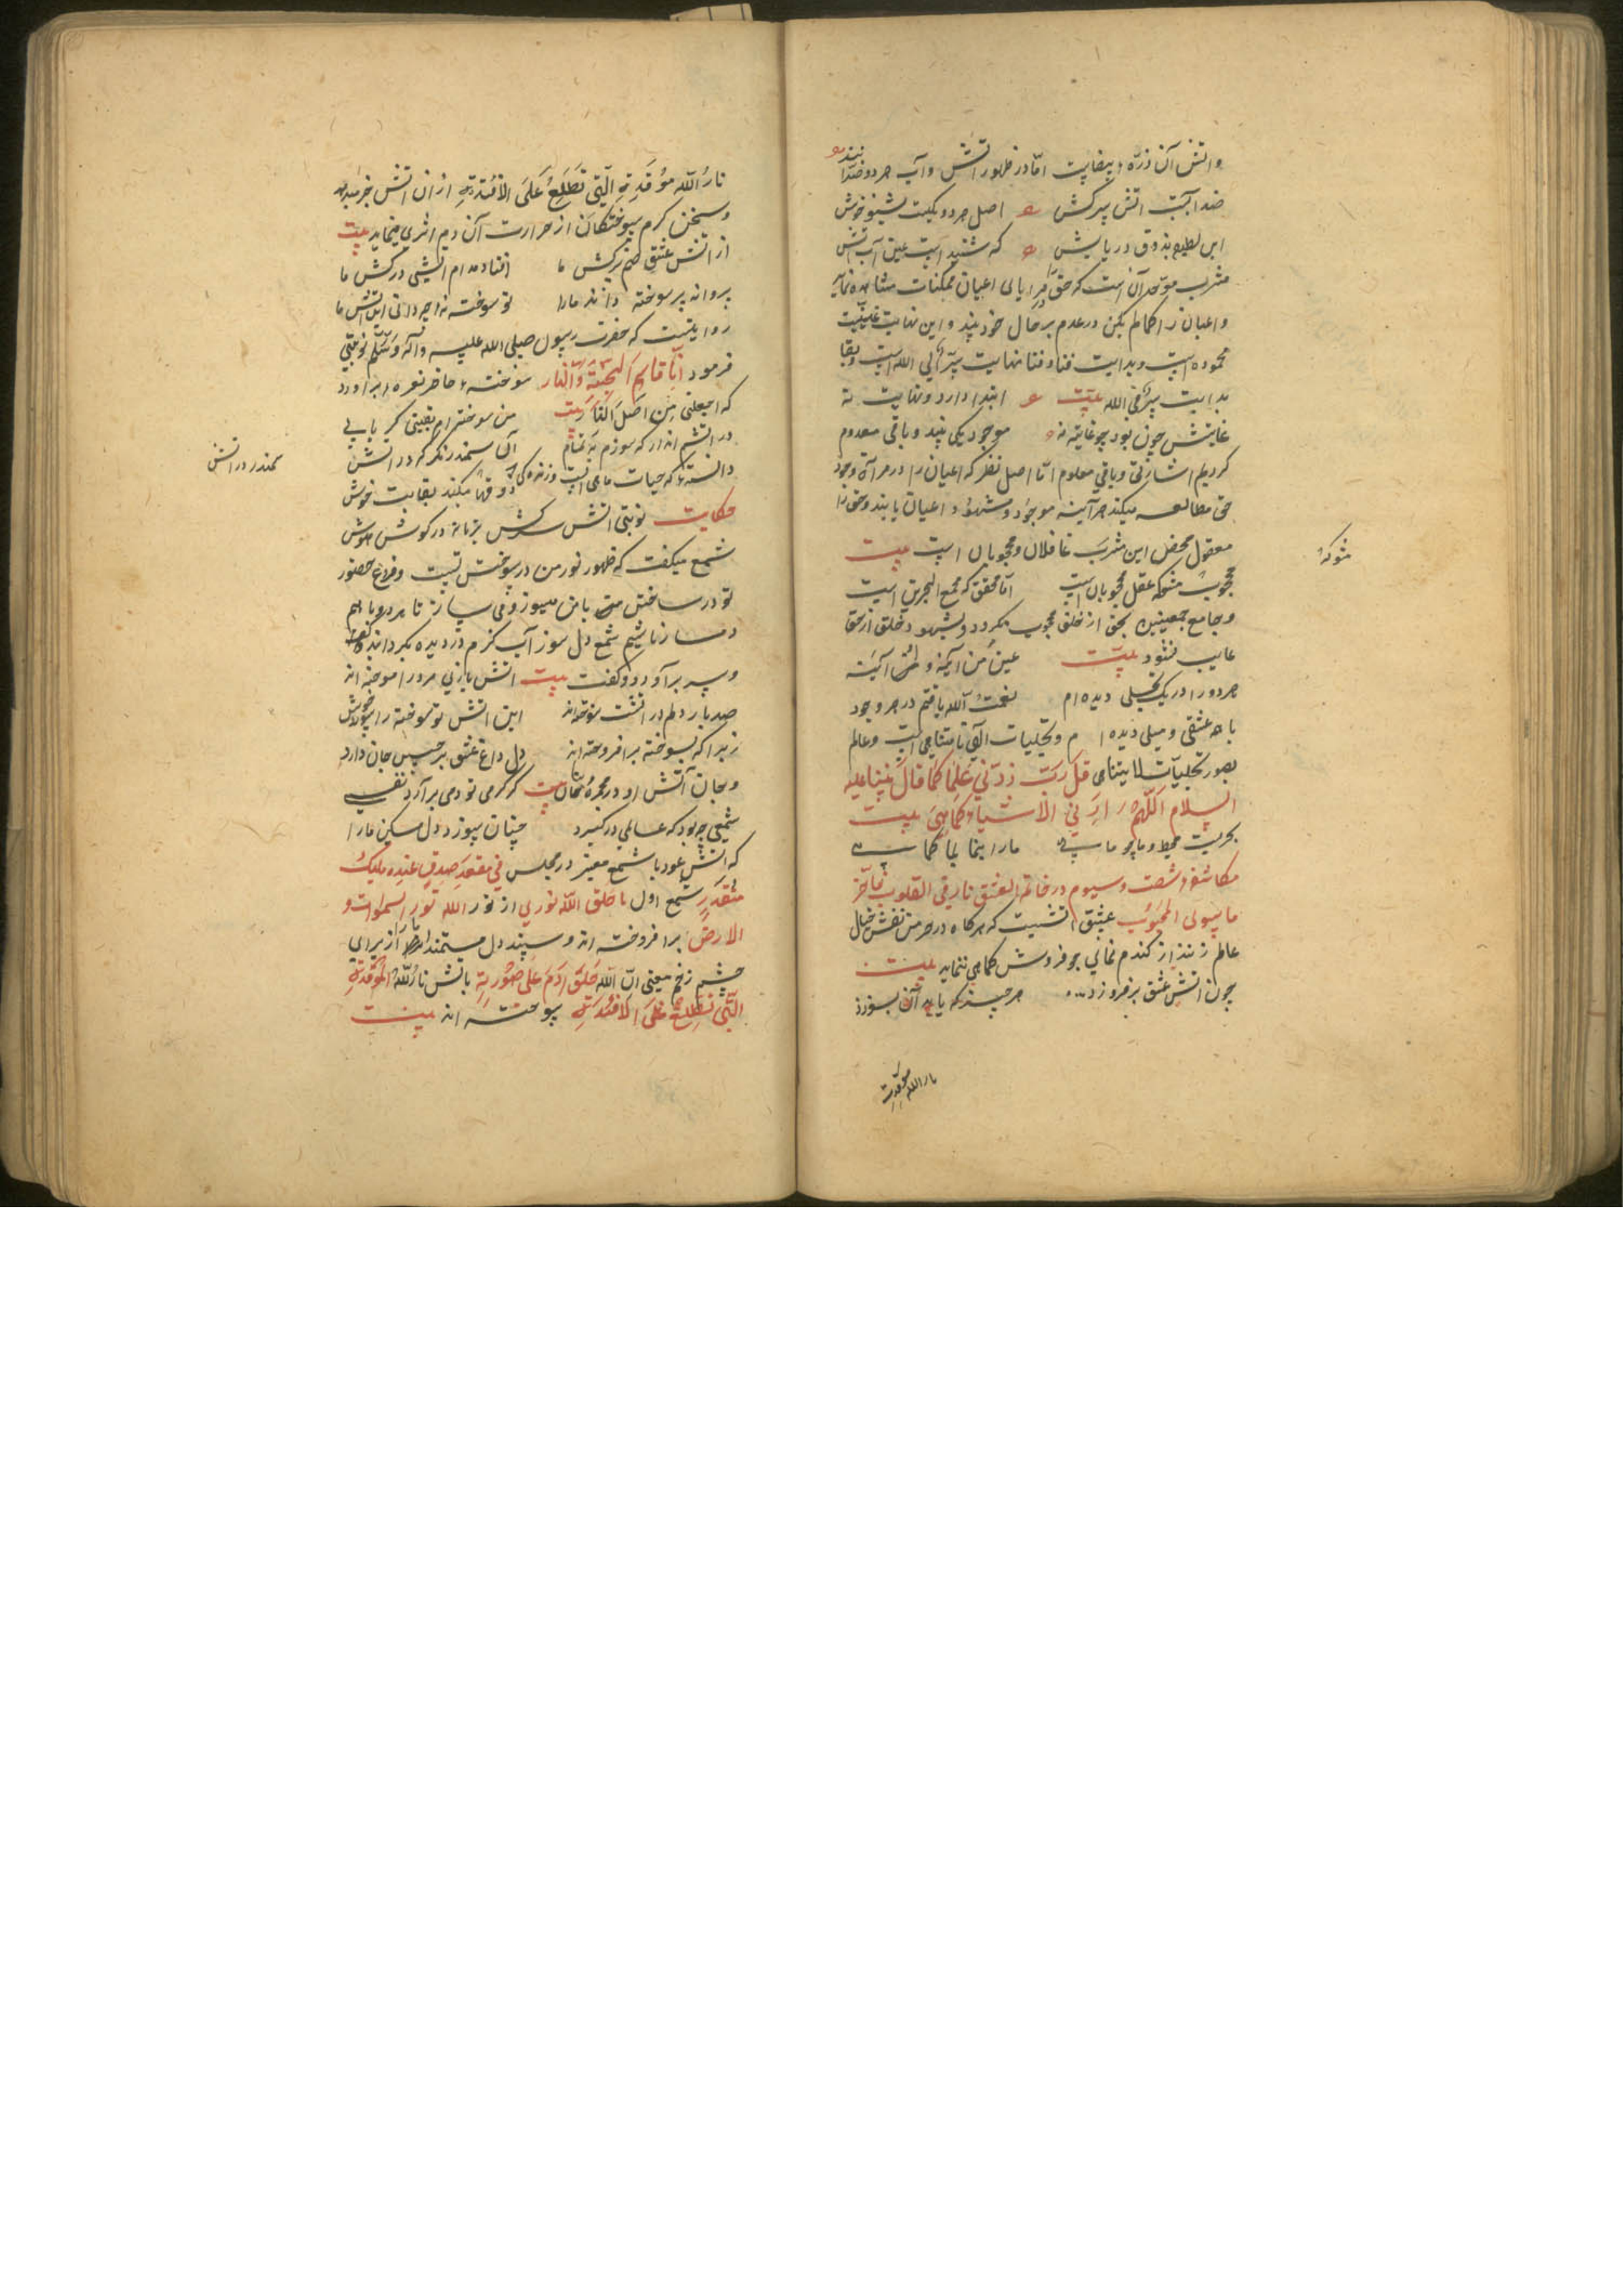 و اتش آن ذره بیضایت اما در ظهور اتش و آب هر دو ضد
ضد آبست اتش سرکش اصل هر دو یکیست بشنو خوش
این لطیفه بذوق دریابش که شنید است عین آب آتش
مشرب موحد آن است که حق را در مرایای اعیان ممکنات مشاهده نماید
و اعیان را کمالم یکن در عدم بر حال خود بیند و این نهایت
محموده است و بدایت فنا و فنا نهایت سیر الی الله است و بقا
بدایت سیر فی الله بیت ابتدا دارد و نهایت نه
غایتش چون بود چو غایته نه موجود یکی بیند و باقی معدوم
کردیم اشارتی و باقی معلوم اما اصل نظر که اعیان را در مرآة وجود
حق مطالعه میکند هر آینه موجود و مشهود اعیان یابند و حق را
معقول محض این مشرب غافلان و محجوبان است بیت
محجوب عقل محجوبان است اما محقق که مجمع البحرین است
و جامع جمعیتین بحق از خلق محجوب نکردد و بشهود خلق از حق
غایب نشود بیت عین من آینه و آینه
هر دو را در یک تجلی دیده ام نعمت الله یافتم در هر وجود
با همه عشقی و میلی دیده ام و تجلیات الهی نامتناهی است و عالم
بصور تجلیات لا یتناهی قل رب زدنی علما کما قال نبینا علیه
السلام اللهم ارنی الاشیاء کما هی بیت
بحریست محیط و ما چو ماهی ما را بنما بما کماهی
مکاشفه شصت و سیوم در خاتم العشق نار فی القلوب
ما سوی المحبوب عشق اتشیست که هر کاه در خرمن نقش خیال
عالم زنند از کندم نمایی جو فروش کماهی ننماید بیت
چون اتش عشق بر فروزد هر چیز که یابد آن بسوزد
نار الله موقدة
نارُ الله مُوقَدة الّتی تَطّلعُ عَلَی الافئدة از آن اتش خبر میدهد
و سخن کرم سوختکان از حرارت آن دم اثری مینماید بیت
از اتش عشق سرکش ما افتاده ام اتشی درکش ما
پروانه پر سوخته داند ما را تو سوخته نه چه دانی این اتش ما
روایتست که حضرت رسول صلی الله علیه و آله و سلم نوبتی
فرمود أنا قاسم الجنة و النار سوخته حاضر نعره برآورد
که اجعلنی من اهل النار بیت من سوخته ام یقینی کر یابی
در اتشم انداز که سوزم به تمام آن سمندر نکر که در اتش
سمندر در اتش
ذوقها میکند بغایت خوش
حکایت نوبتی اتش سرکش بزبانه در کوش هوش
شمع میکفت که ظهور نور من در سوختن تست و فراغ حضور
تو در ساختن من با من میسوز و می ساز تا هر دو با هم
دمساز باشیم شمع دل سوز آب کرم در دیده بکردانید
و سر برآورد و کفت بیت اتش بازی مرا در آموخته اند
صد بار دلم در اتشت سوخته اند این اتش تو سوخته را
زیرا که بسوخته برافروخته اند دل داغ عشق بر جان دارد
و بجان آتش او در مجمره بیت کر کرمی تو دمی برآرد نفسی
شمعی چه بود که عالمی در کیرد چنان سوزد دل مسکین ما را
که اتش عود با شمع معنبر در مجلس فی مقعد صدق عند ملیک
مقتدر شمع اول ما خلق الله نوری از نور الله نور السموات و
الارض برافروخته اند و سپند دل مستمند را از برای
چشم زخم معنی ان الله خلق ادم علی صورته باتش نار الله الموقدة
التی تطلع علی الافئدة سوخته اند بیت